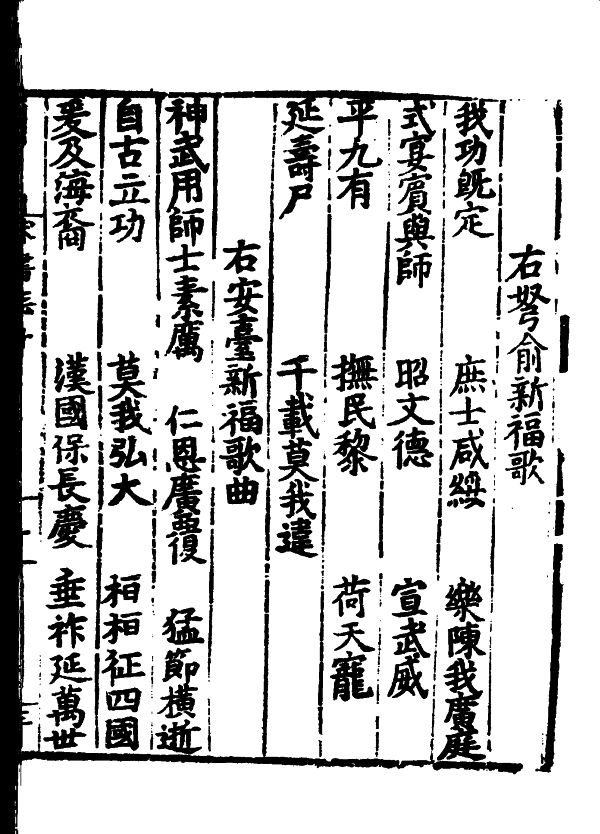 右弩俞新福歌
我功既定　庶士咸綏　樂陳我廣庭
式宴賓與師　昭文德　宣武威
平九有　撫民黎　荷天寵
延壽尸　千載莫我違
右安臺新福歌曲
神武用師士素厲　仁恩廣覆　猛節橫逝
自古立功　莫我弘大　桓桓征四國
爰及海裔　漢國保長慶　垂祚延萬世